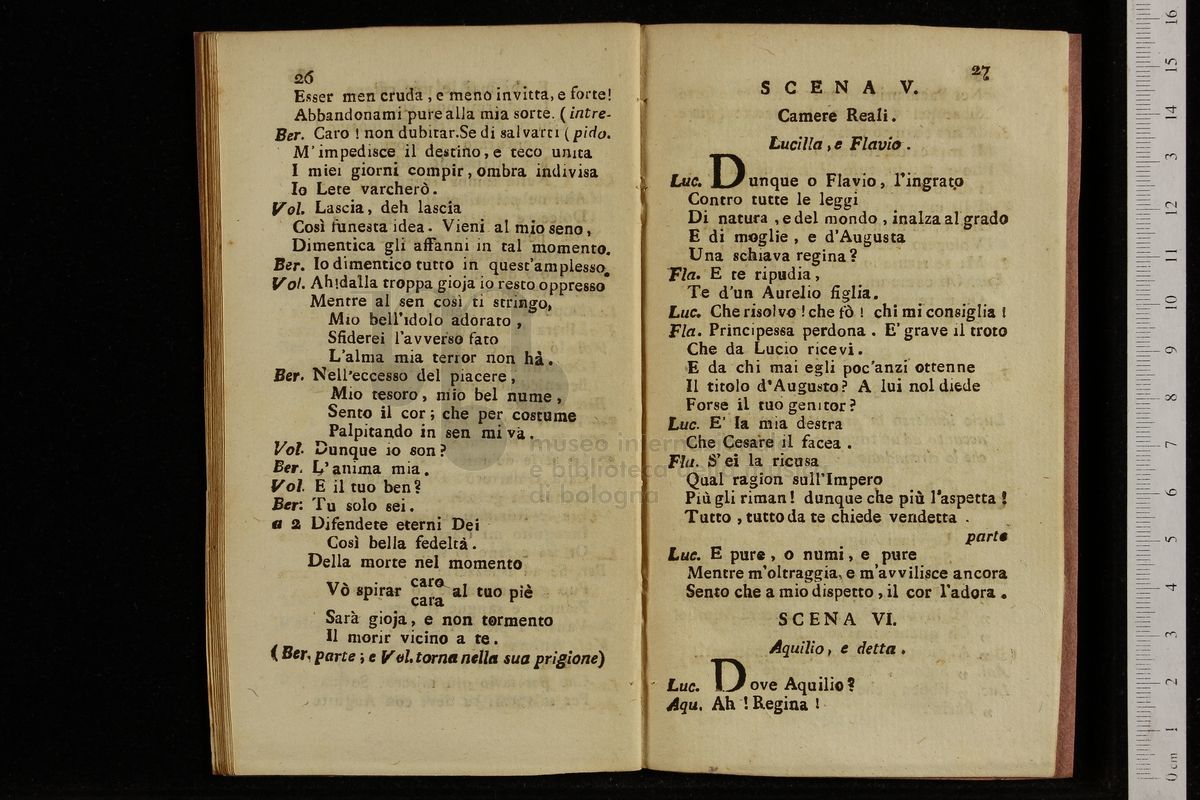 26
Esser men cruda , e meno invitta, e forte!
Abbandonami pure alla mia sorte. (intre-
Ber. Caro ! non dubitar.Se di salvarti (pido.
M'impedisce il destino, e teco unita
I miei giorni compir, ombra indivisa
Io Lete varcherò.
Vol. Lascia, deh lascia
Così funesta idea. Vieni al mio seno,
Dimentica gli affanni in tal momento.
Ber. Io dimentico tutto in quest'amplesso.
Vol. Ah!dalla troppa gioja io resto oppresso
Mentre al sen così ti stringo,
Mio bell'idolo adorato ,
Sfiderei l'avverso fato
L'alma mia terror non hà.
Ber. Nell'eccesso del piacere,
Mio tesoro, mio bel nume,
Sento il cor; che per costume
Palpitando in sen mi và.
Vol. Dunque io son?
Ber. L'anima mia.
Vol. E il tuo ben?
Ber: Tu solo sei.
a 2 Difendete eterni Dei
Così bella fedeltà.
Della morte nel momento
Vò spirar caro al tuo piè
cara
Sarà gioja, e non tormento
Il morir vicino a te.
(Ber. parte; e Vol. torna nella sua prigione)
27
SCENA V.
Camere Reali.
Lucilla, e Flavio.
Luc. Dunque o Flavio, l'ingrato
Contro tutte le leggi
Di natura , e del mondo , inalza al grado
E di moglie , e d'Augusta
Una schiava regina?
Fla. E te ripudia,
Te d'un Aurelio figlia.
Luc. Che risolvo ! che fò ! chi mi consiglia !
Fla. Principessa perdona . E' grave il troto
Che da Lucio ricevi.
E da chi mai egli poc'anzi ottenne
Il titolo d'Augusto? A lui nol diede
Forse il tuo genitor?
Luc. E' la mia destra
Che Cesare il facea .
Fla. S'ei la ricusa
Qual ragion sull'Impero
Più gli riman! dunque che più l'aspetta !
Tutto , tutto da te chiede vendetta .
parte
Luc. E pure , o numi, e pure
Mentre m'oltraggia, e m'avvilisce ancora
Sento che a mio dispetto , il cor l'adora .
SCENA VI.
Aquilio, e detta.
Luc. Dove Aquilio?
Aqu. Ah ! Regina !
museo internazionale
e biblioteca della musica
di bologna
0 cm 1 2 3 4 5 6 7 8 9 10 11 12 13 14 15 16